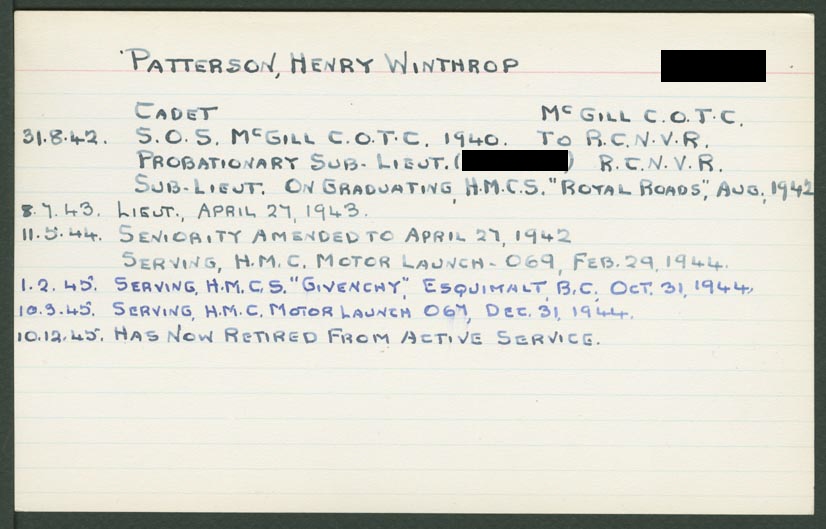 PATTERSON, HENRY WINTHROP
CADET McGILL C.O.T.C.
31.8.42. S.O.S. McGILL C.O.T.C. 1940. TO R.C.N.V.R.
PROBATIONARY SUB-LIEUT. ( ) R.C.N.V.R.
SUB-LIEUT. ON GRADUATING, H.M.C.S. "ROYAL ROADS", AUG, 1942
8.7.43. LIEUT., APRIL 27, 1943.
11.5.44. SENIORITY AMENDED TO APRIL 27, 1942
SERVING, H.M.C. MOTOR LAUNCH - 069, FEB. 29, 1944.
1.2.45. SERVING, H.M.C.S. "GIVENCHY", ESQUIMALT, B.C. OCT. 31, 1944.
10.3.45. SERVING, H.M.C. MOTOR LAUNCH 067, DEC. 31, 1944.
10.12.45. HAS NOW RETIRED FROM ACTIVE SERVICE.